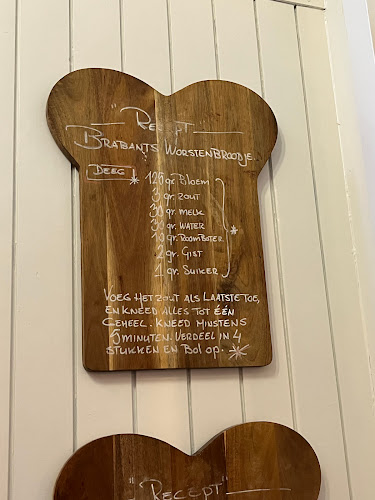 "Recept"
Brabants Worstenbroodje.
Deeg * 125 gr. Bloem
gr. zout
30 gr. melk
30 gr. water
10 gr. RoomBoter *
2 gr. Gist
1 gr. Suiker
Voeg het zout als laatste toe,
en kneed alles tot één
geheel. Kneed minstens
15 minuten. Verdeel in 4
stukken en Bol op. *
"Recept"